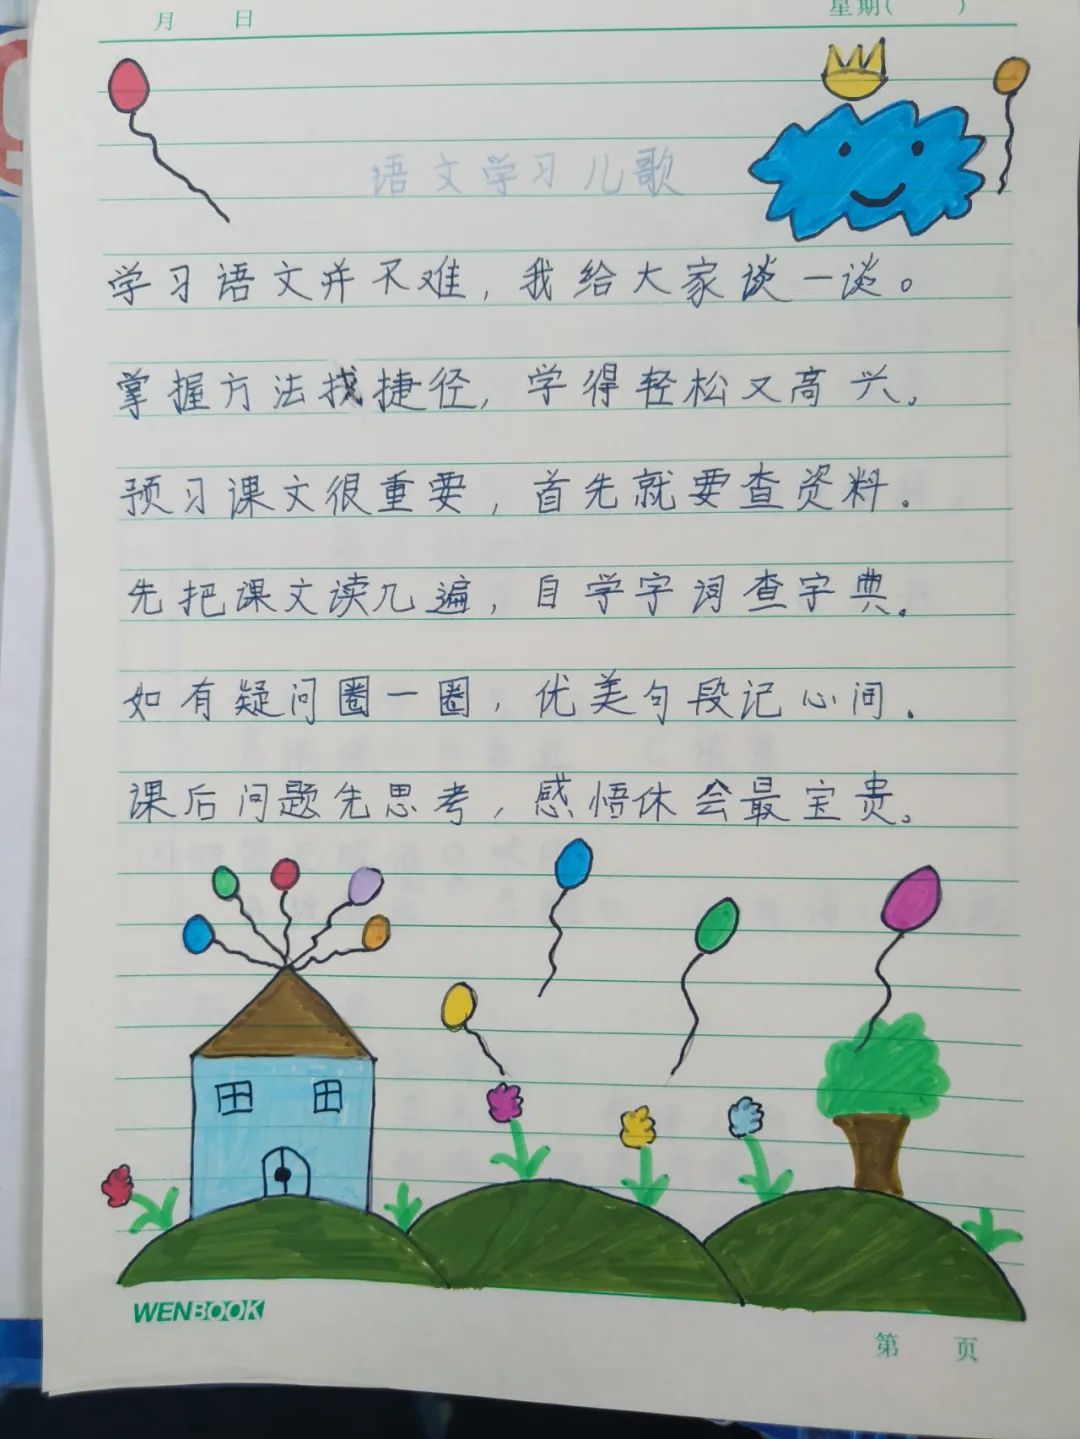 月 日 星期( )
语文学习儿歌
学习语文并不难,我给大家谈一谈。
掌握方法找捷径,学得轻松又高兴。
预习课文很重要,首先就要查资料。
先把课文读几遍,自学字词查字典。
如有疑问圈一圈,优美句段记心间。
课后问题先思考,感悟体会最宝贵。
WENBOOK
第 页